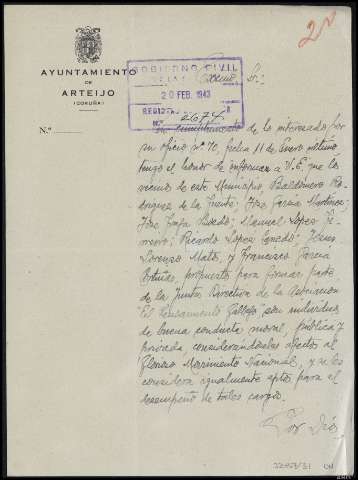 2
AYUNTAMIENTO
DE
ARTEIJO
(CORUÑA)
N.º
GOBIERNO CIVIL
20 FEB. 1943
REGISTRO
N.º 2677
Excmo. Sr.:
En cumplimiento de lo interesado por
su oficio nº 70, fecha 11 de Enero último
tengo el honor de informar a V.E. que los
vecinos de este Municipio, Baldomero Ro-
dríguez de la Fuente; José García Martínez;
José; Manuel López
Ricardo López; 
Lorenzo Mato, y Francisco García
propuestos para formar parte
de la Junta Directiva de la Asociación
"El Pensamiento Gallego" son individuos
de buena conducta moral, pública y
privada considerándoles afectos al
Glorioso Movimiento Nacional, y se les
considera igualmente aptos para el
desempeño de tales cargos.
Por Dios